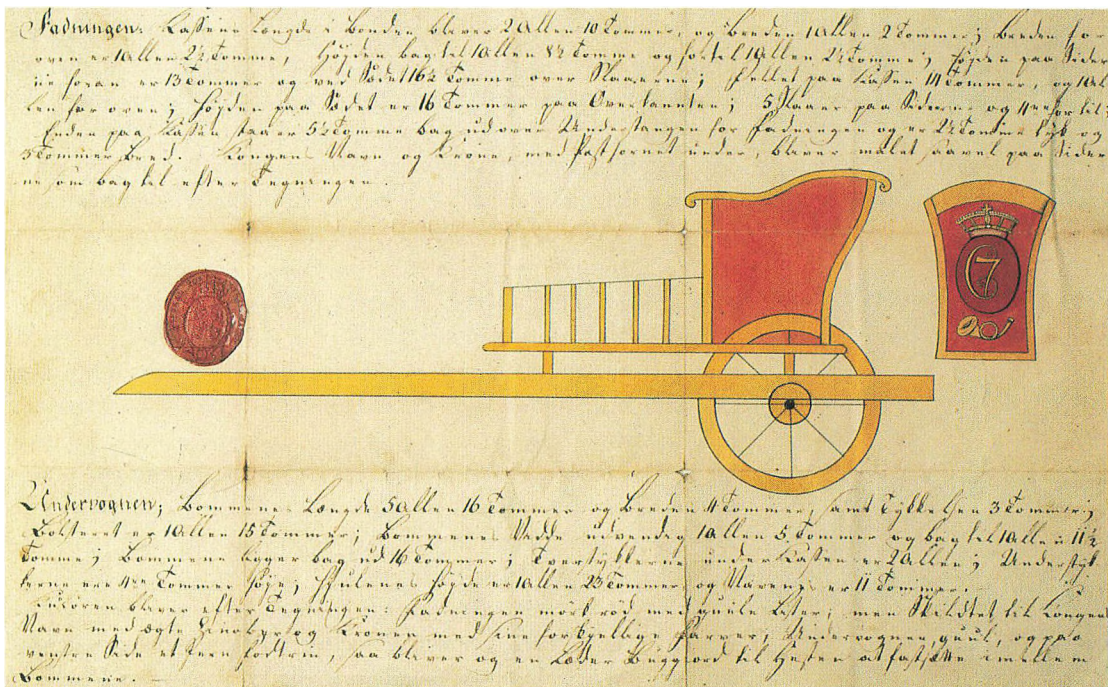 Fadningen: Kassens Længde i Bonden bliver 2 Allen 10 Tommer, og Breden 1 Allen 2 Tommer; Breden for
oven er 1 Allen 2½ Tomme, Høyden bag til 1 Allen 8½ Tomme og for til 1 Allen 2½ Tomme; Høyden paa Sider
ne foran er 13 Tommer og ved Sædet 16½ Tomme over Staverne; paa Kassen 14 Tommer, og 1 Al
len for oven; Høyden paa Sædet er 16 Tommer paa Overkannten; 5 Staver paa Siderne og 4 for til;
Enden paa Kassen staaer 5½ Tomme bag ud over Understangen for Fadningen og er 2½ Tomme tyk og
3 Tommer bred. Kongens Navn og Krone, med Posthornet under, bliver malet saavel paa Sider
ne som bag til efter Tegningen.
C7
Undervognen; Bommenes Længde 5 Allen 16 Tommer og Breden 4 Tommer, samt Tykkelsen 3 Tommer;
Bolsteret er 1 Allen 15 Tommer; Bommenes Vidde udvendig 1 Allen 5 Tommer og bag til 1 Allen 11½
Tomme; Bommene ligger bag ud 16 Tommer; Tverstykkerne under Kassen er 2 Allen; Understyk
kerne ere 4 Tommer høye; Hjulenes Høyde er 1 Allen 23 Tommer, og Navene er 11 Tommer.
Kulören bliver efter Tegningen: Fadningen mörk röd med guule Lister; men Skildtet til Kongens
Navn med ægte Zinober, og Kronen med sine forskjellige Farver; Undervognen guul, og paa
venstre Side et Jern Fodtrin, saa bliver og en Læder Buggjord til Hesten at fastsætte imellem
Bommene. —